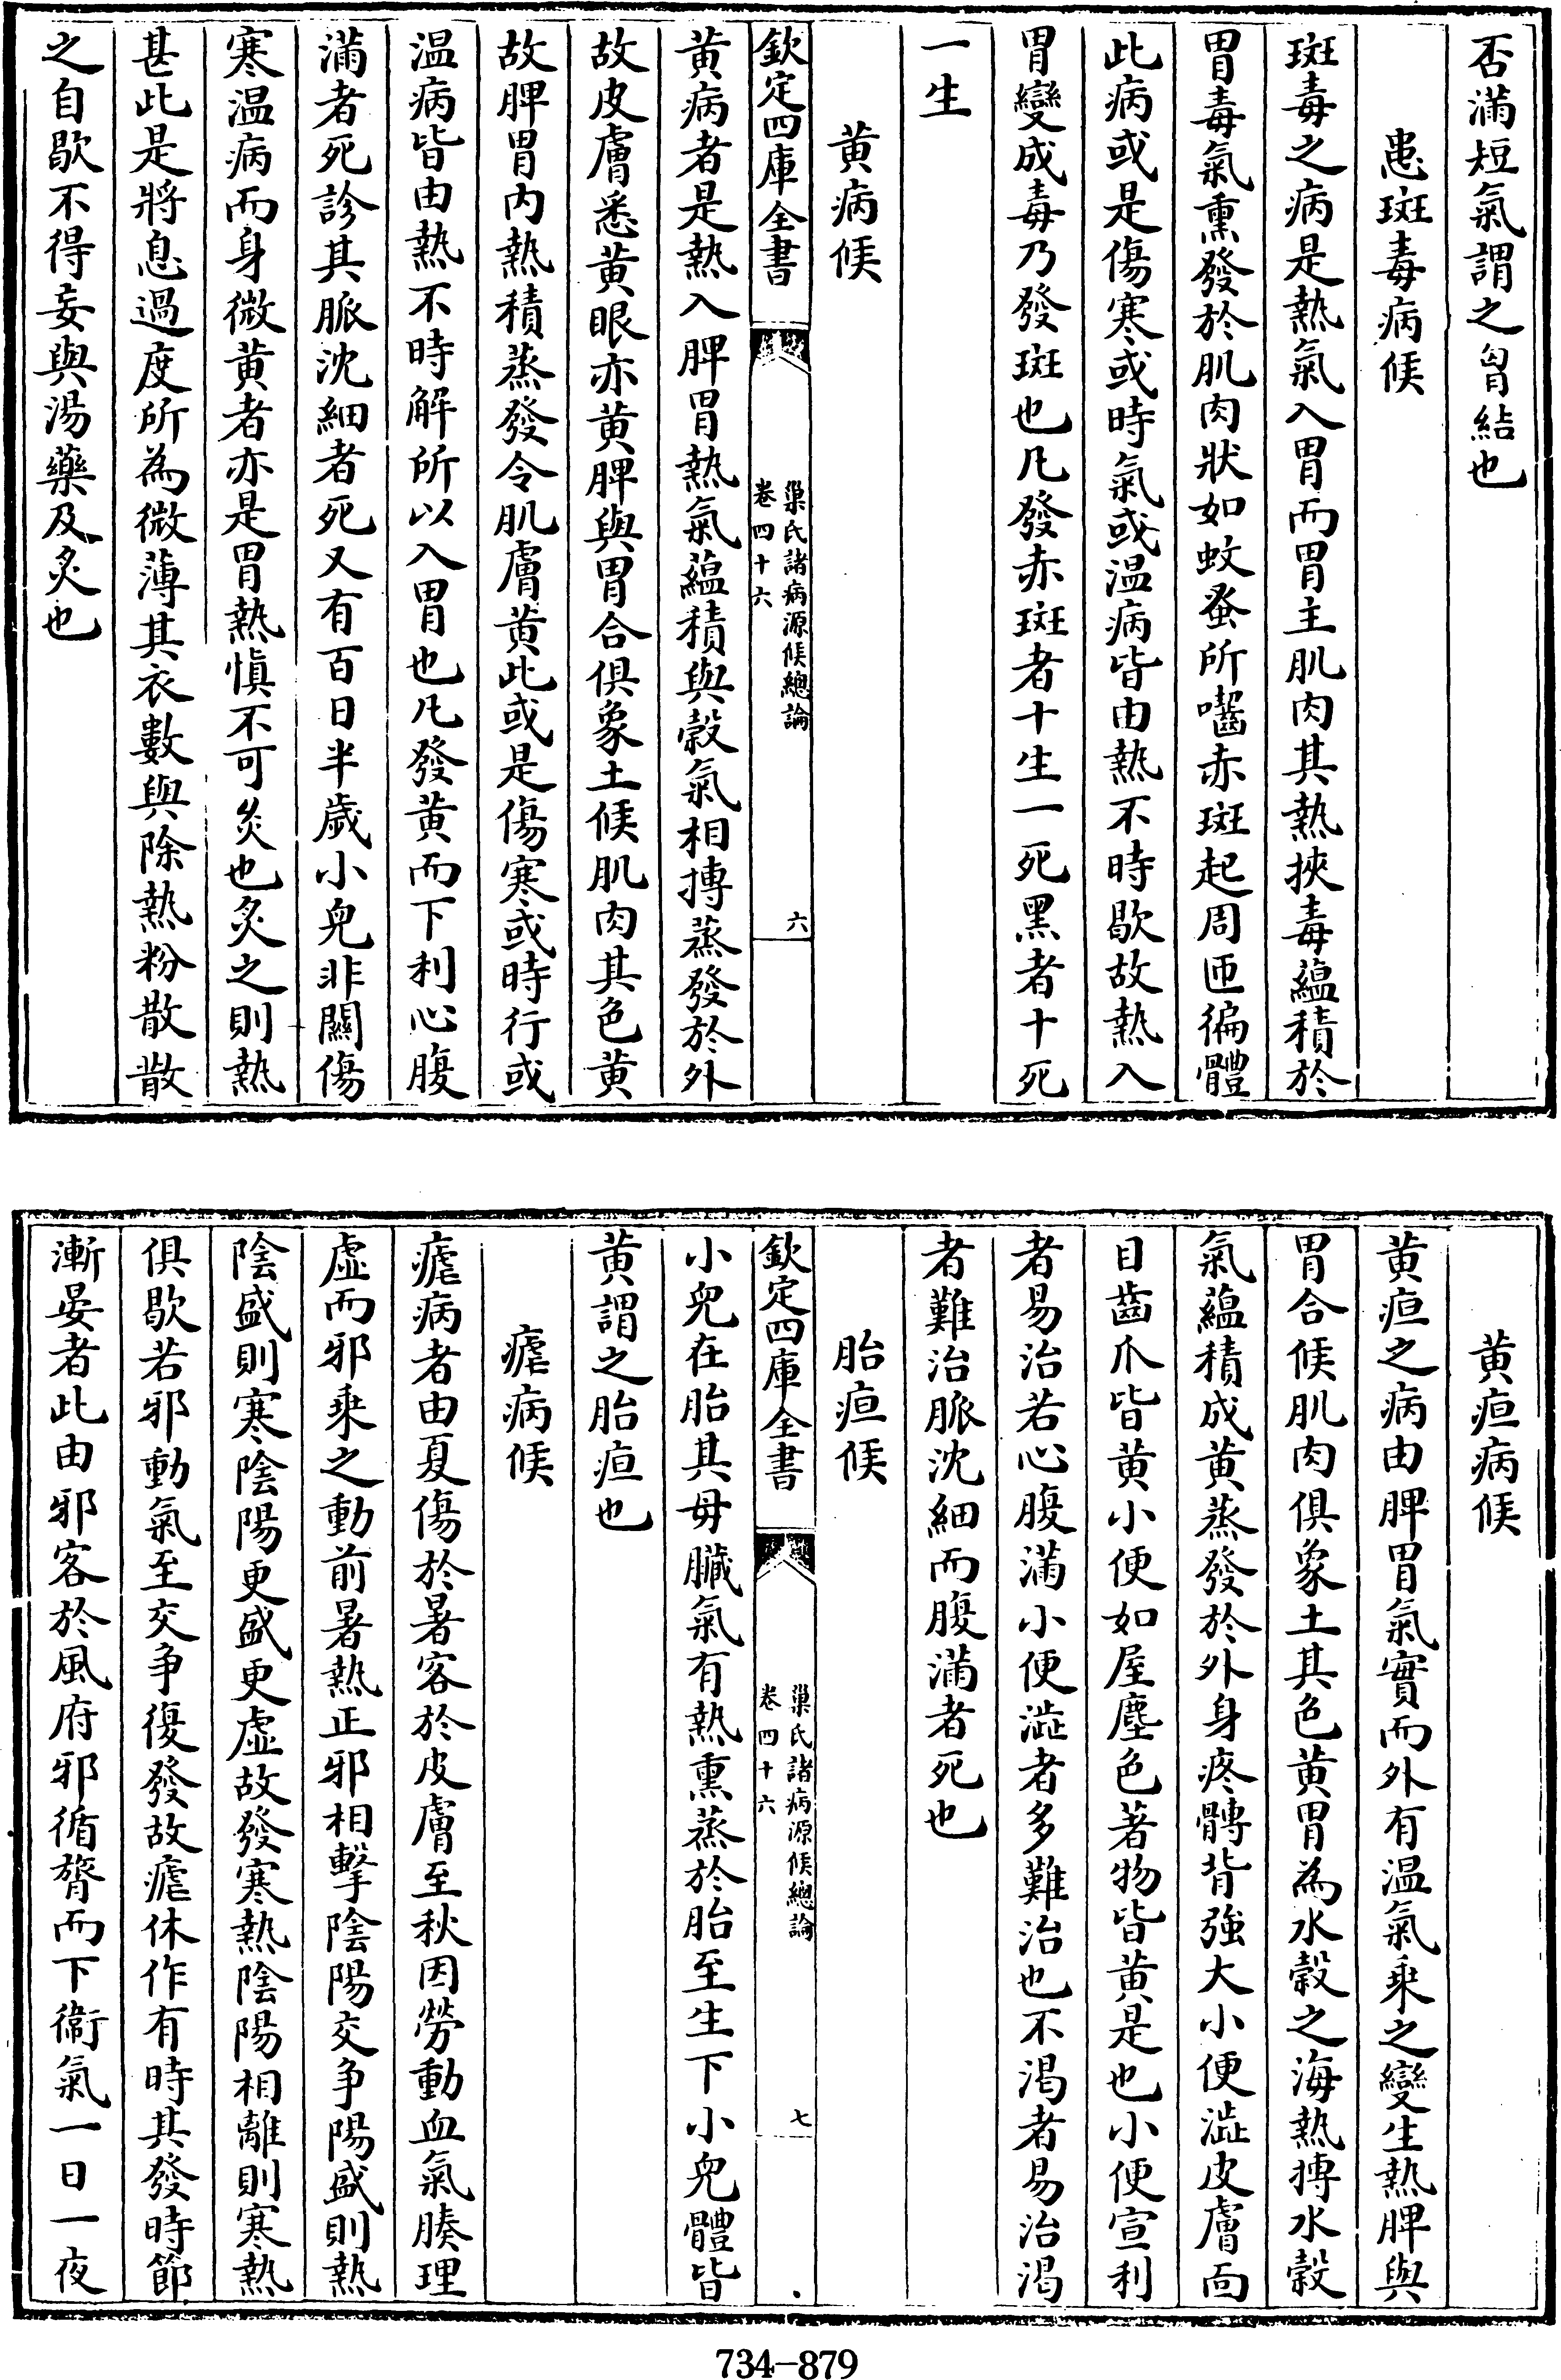 否滿短氣謂之胷結也
患斑毒病候
斑毒之病是熱氣入胃而胃主肌肉其熱挾毒蘊積於
胃毒氣熏發於肌肉狀如蚊蚤所嚙赤斑起周匝徧體
此病或是傷寒或時氣或温病皆由熱不時歇故熱入
胃變成毒乃發斑也凡發赤斑者十生一死黑者十死
一生
黄病候
欽定四庫全書
巢氏諸病源候總論
卷四十六
六
黄病者是熱入脾胃熱氣蘊積與穀氣相摶蒸發於外
故皮膚悉黄眼亦黄脾與胃合俱象土候肌肉其色黄
故脾胃内熱積蒸發令肌膚黄此或是傷寒或時行或
温病皆由熱不時解所以入胃也凡發黄而下利心腹
滿者死診其脈沈細者死又有百日半歲小兒非關傷
寒温病而身微黄者亦是胃熱慎不可灸也灸之則熱
甚此是將息過度所為微薄其衣數與除熱粉散散
之自歇不得妄與湯藥及灸也
黄疸病候
黄疸之病由脾胃氣實而外有温氣乘之變生熱脾與
胃合候肌肉俱象土其色黄胃為水穀之海熱摶水穀
氣蘊積成黄蒸發於外身疼髆背強大小便澁皮膚面
目齒爪皆黄小便如屋塵色著物皆黄是也小便宣利
者易治若心腹滿小便澁者多難治也不渴者易治渴
者難治脈沈細而腹滿者死也
胎疸候
欽定四庫全書
巢氏諸病源候總論
卷四十六
七
小兒在胎其母臟氣有熱熏蒸於胎至生下小兒體皆
黄謂之胎疸也
瘧病候
瘧病者由夏傷於暑客於皮膚至秋因勞動血氣腠理
虛而邪乘之動前暑熱正邪相擊陰陽交爭陽盛則熱
陰盛則寒陰陽更盛更虛故發寒熱陰陽相離則寒熱
俱歇若邪動氣至交爭復發故瘧休作有時其發時節
漸晏者此由邪客於風府邪循膂而下衞氣一日一夜
734-879